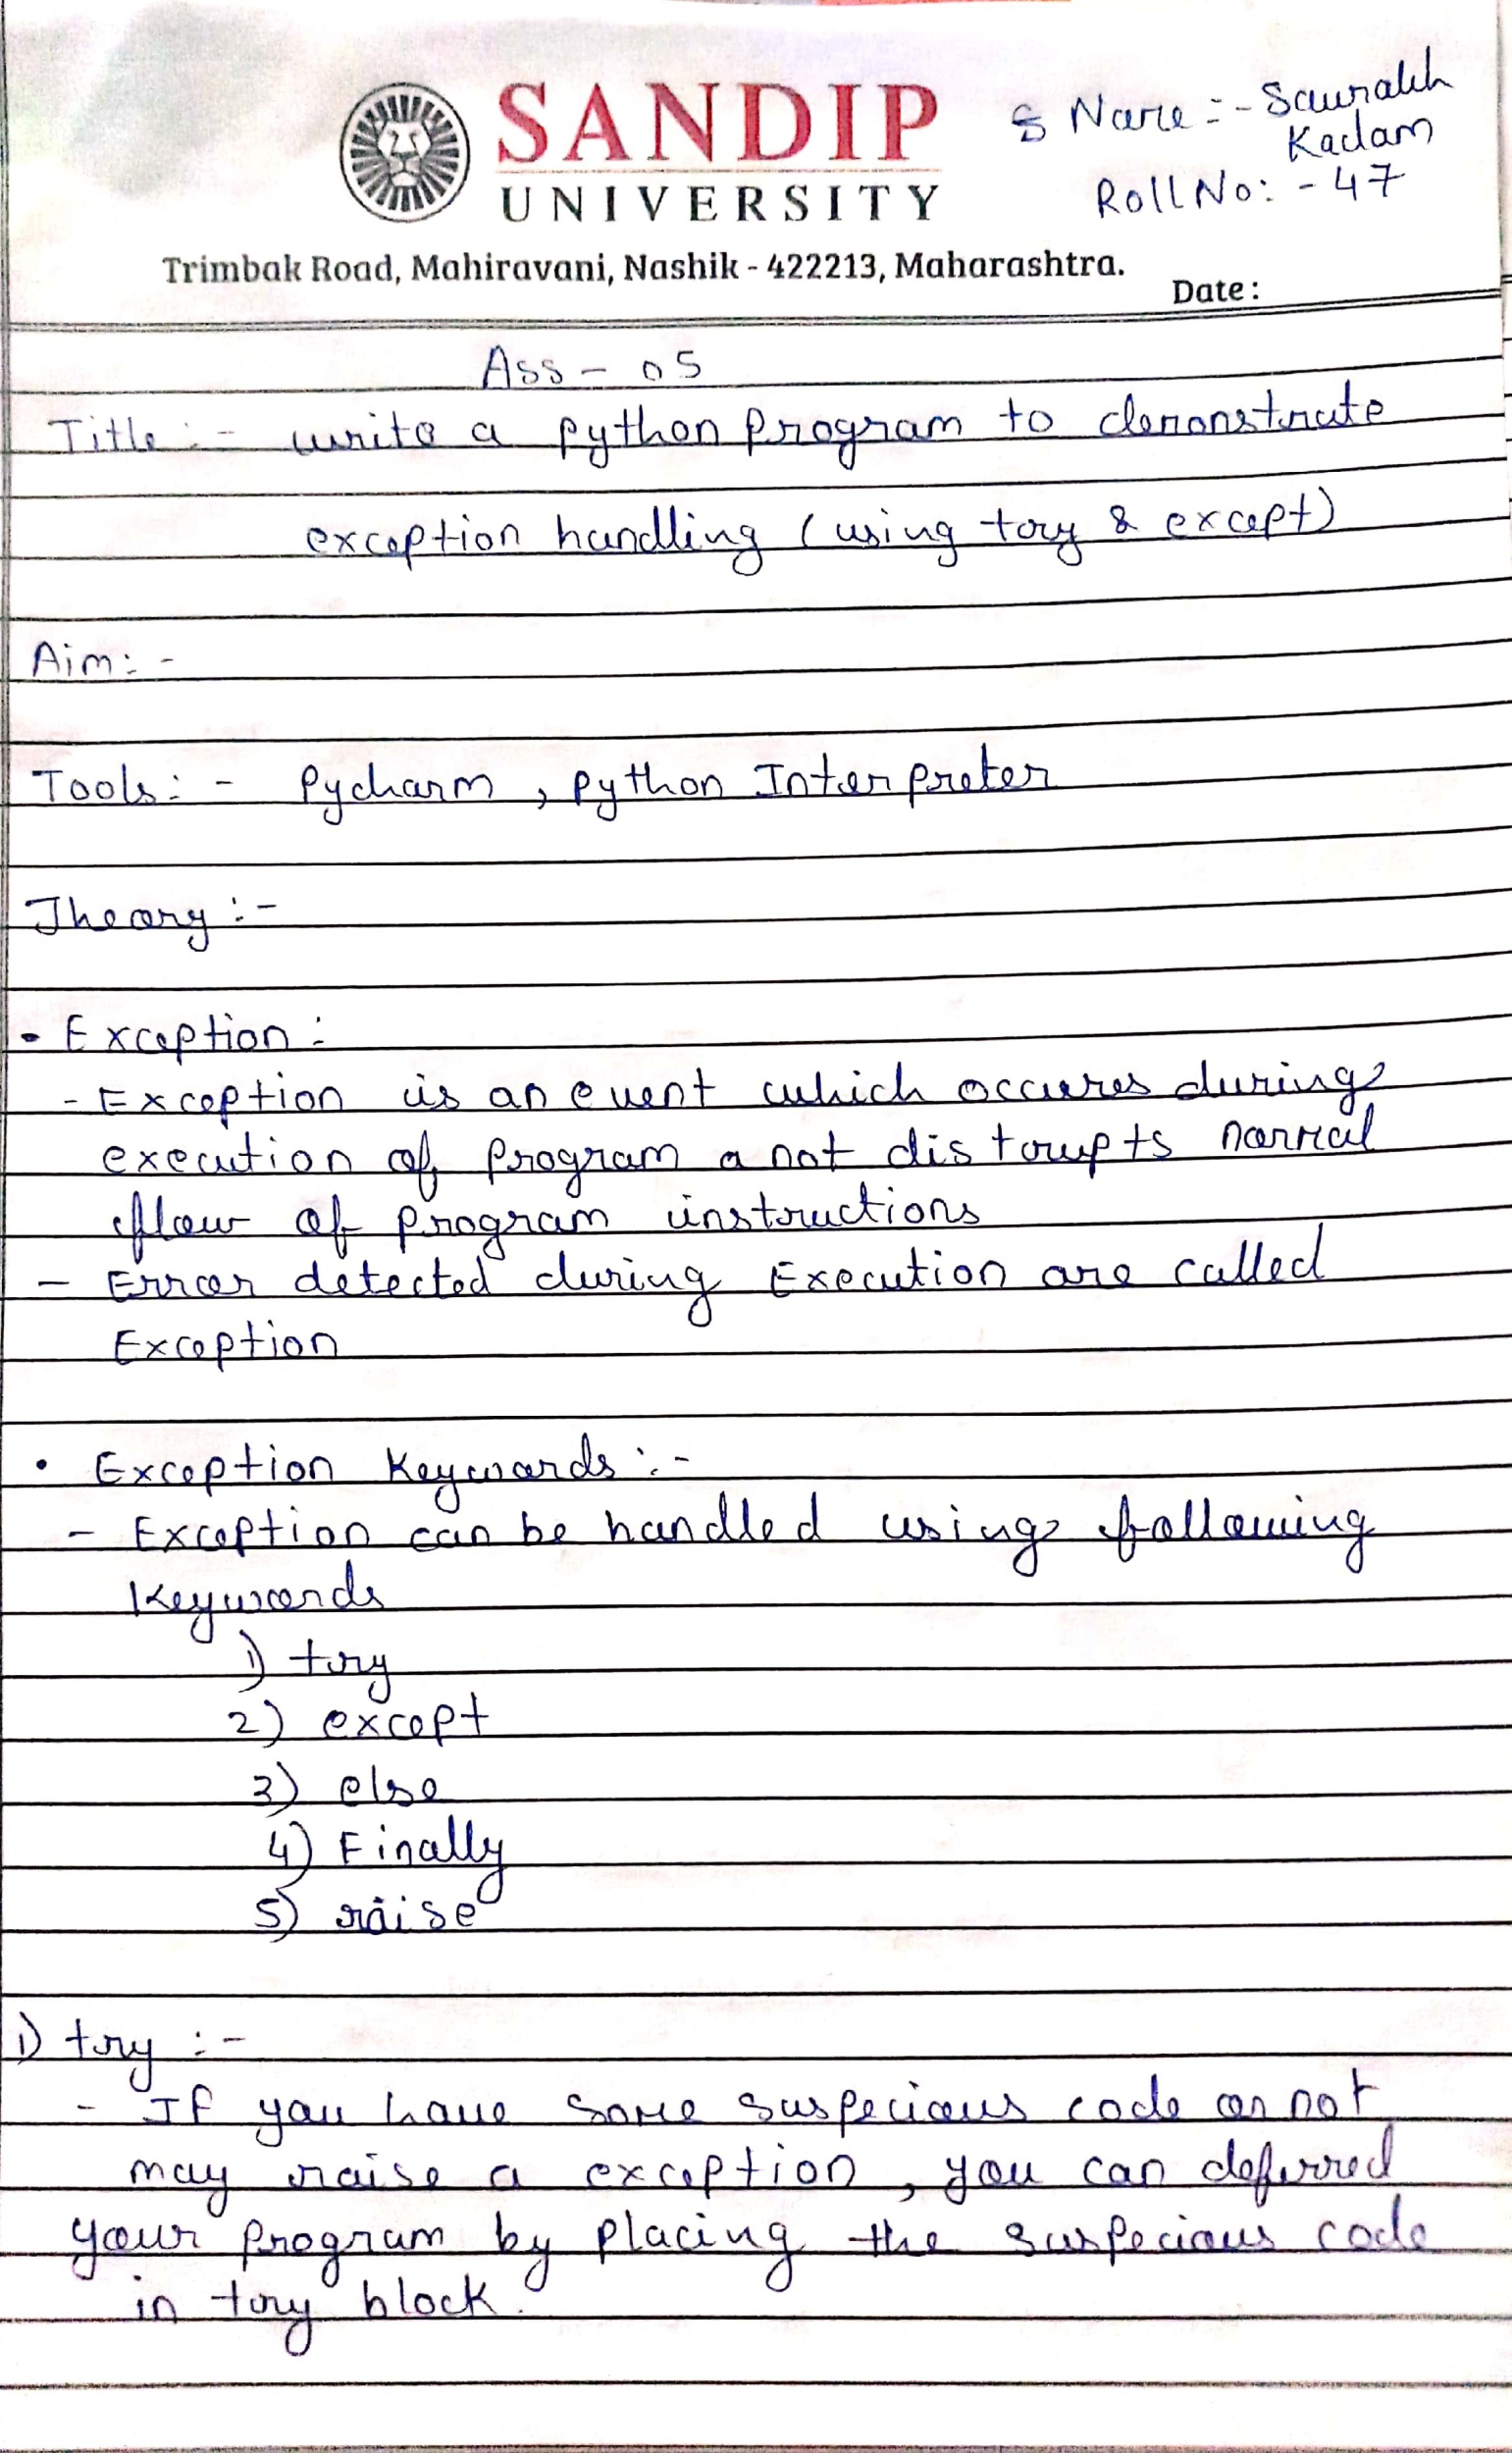 SANDIP
UNIVERSITY
Name :- Saurabh
Kadam
Roll No: - 47
Trimbak Road, Mahiravani, Nashik - 422213, Maharashtra.
Date :
Ass - 05
Title :- write a python program to demonstrate
exception handling (using try & except)
Aim: -
Tools: - Pycharm, python Interpreter
Theory :-
• Exception :
- Exception is an event which occures during
execution of program a not distrupts normal
flow of program instructions
- Error detected during Execution are called
Exception
• Exception Keywords :-
- Exception can be handled using following
Keywords
1) try
2) except
3) else
4) Finally
5) raise
1) try :-
- If you have some suspecious code or not
may raise a exception, you can deferred
your program by placing the suspecious code
in try block.